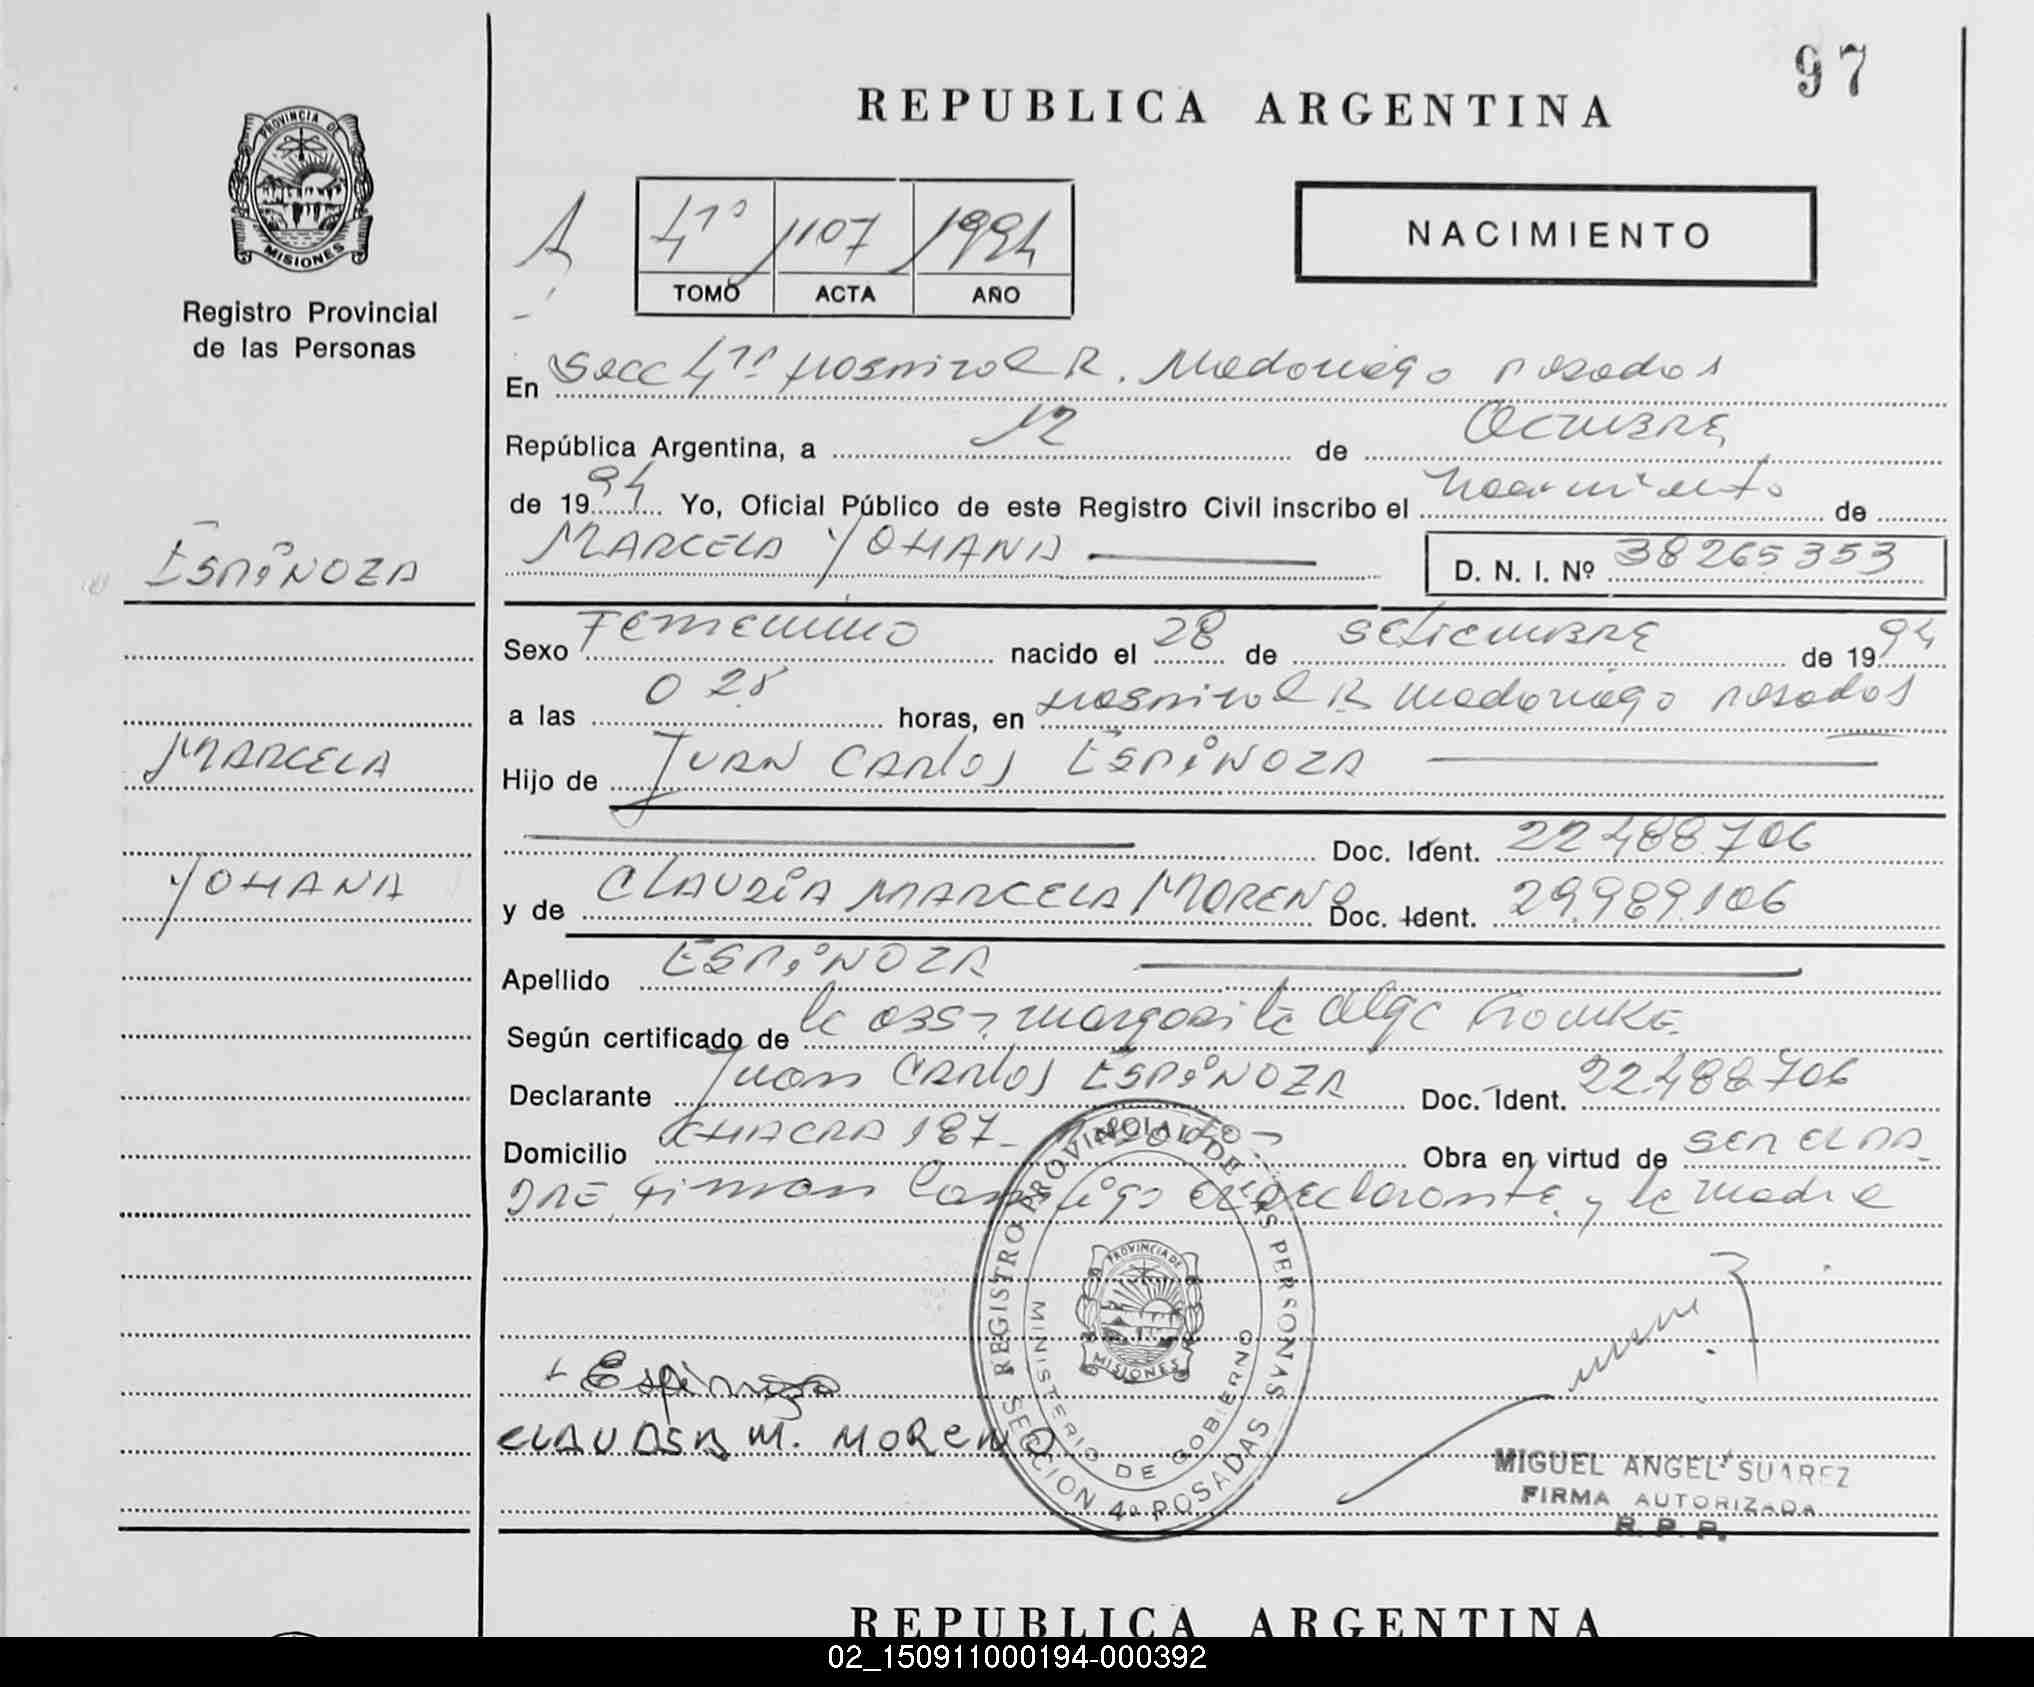 97
REPUBLICA ARGENTINA
PROVINCIA DE
MISIONES
Registro Provincial
de las Personas
A
4º 1107 1994
TOMO ACTA AÑO
NACIMIENTO
En Secc 4ta Hospital R. Madariaga Posadas
República Argentina, a 12 de Octubre
de 1994 Yo, Oficial Público de este Registro Civil inscribo el nacimiento de
MARCELA YOHANA D. N. I. Nº 38265353
ESPINOZA
Sexo Femenino nacido el 28 de setiembre de 1994
a las 0 28 horas, en Hospital R Madariaga Posadas
MARCELA
Hijo de JUAN CARLOS ESPINOZA
Doc. Ident. 22488706
YOHANA
y de CLAUDIA MARCELA MORENO Doc. Ident. 29.989.106
Apellido ESPINOZA
Según certificado de la Obst. Margarita Olga
Declarante Juan Carlos ESPINOZA Doc. Ident. 22488706
Domicilio CHACRA 187- Obra en virtud de SER EL PA
DRE. Firman Conmigo el declarante y la madre
REGISTRO PROVINCIAL DE LAS PERSONAS
MINISTERIO DE GOBIERNO
SECCION 4ª POSADAS
PROVINCIA DE
MISIONES
+ Espinoza
CLAUDIA M. MORENO
MIGUEL ANGEL SUAREZ
FIRMA AUTORIZADA
R. P. P.
REPUBLICA ARGENTINA
02_150911000194-000392